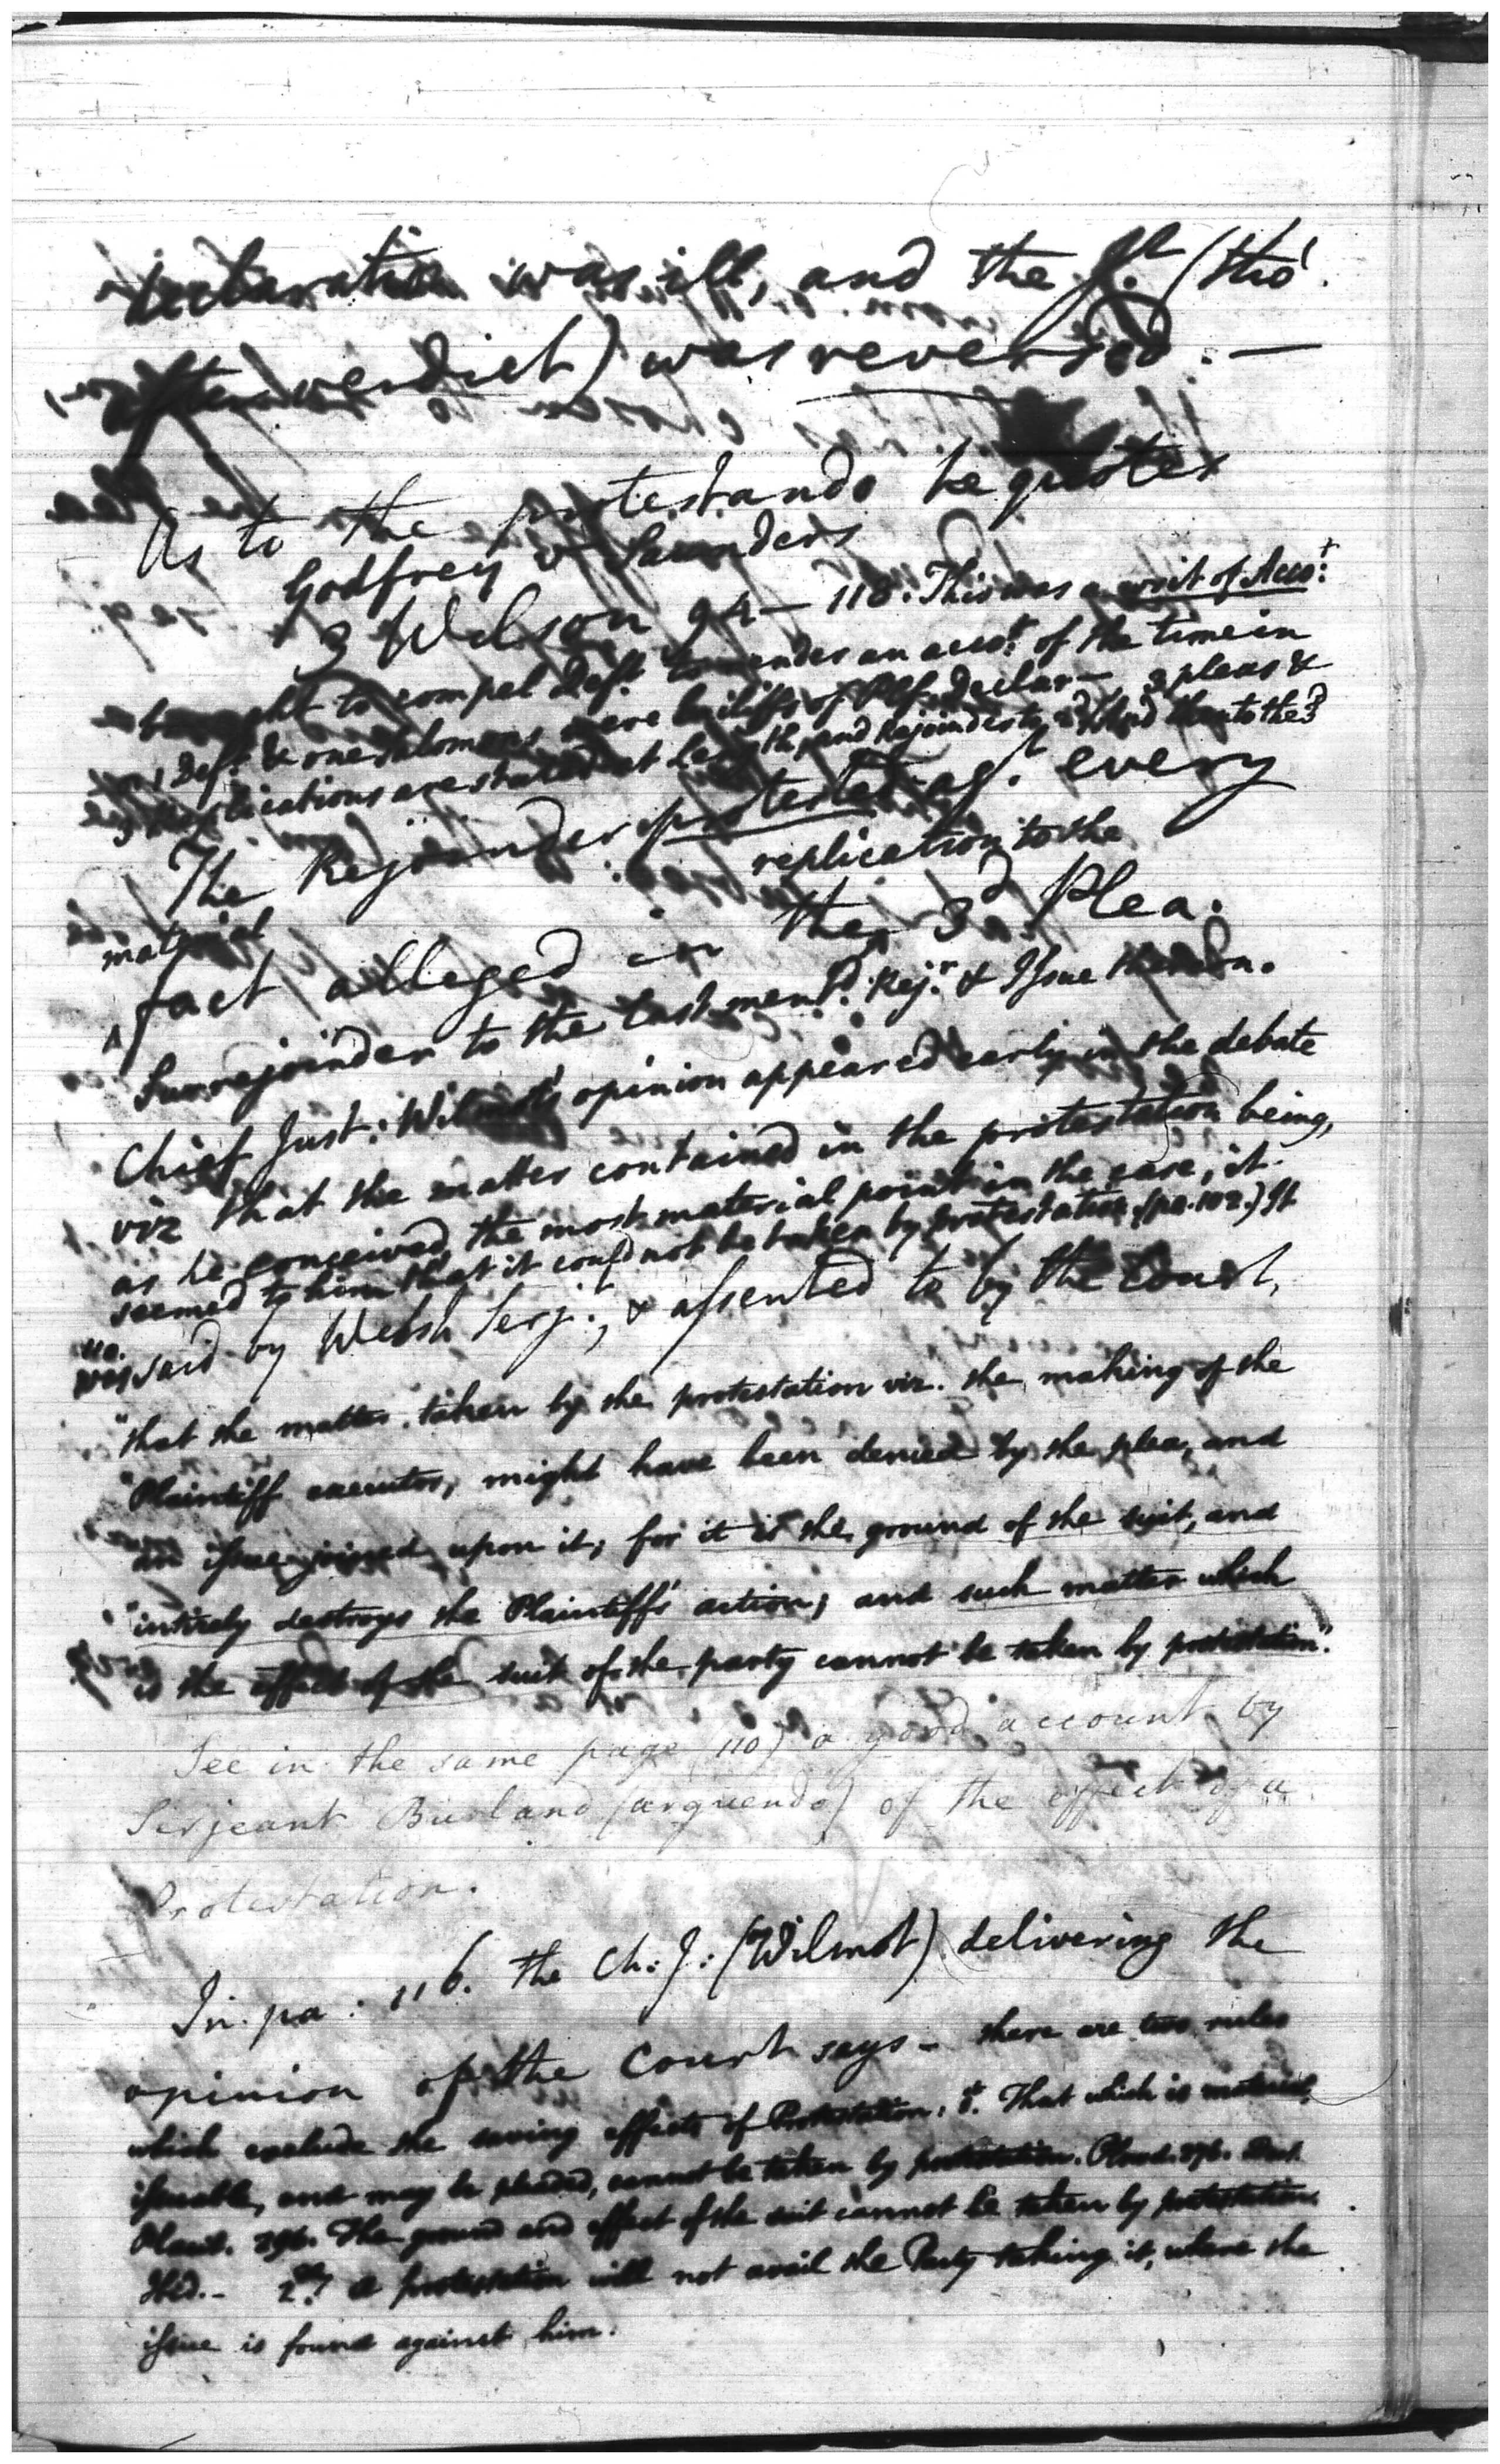 declaration was ill, and the Jt. (tho'
after verdict) was reversed. —
As to the protestando he quotes
Godfrey v Saunders
3 Wilson 94 — 118. This was a writ of Acct:
brought to compel Deft. to render an acct: of the time in
Deft. & one Salomons were bailiffs of Plf. Declar— 3 pleas &
3 Replications are stated at length, and Rejoinders to the 3d
The Rejoinder protested agt. every
replication to the
material
^ fact alleged in the ^ 3d. Plea.
Surrejoinder to the last ment.d Rej.r & Issue thereon.
Chief Just: Wilmot's opinion appeared early in the debate
viz that the matter contained in the protestation being,
as he conceived, the most material point in the case, it
seemed to him that it could not be taken by protestation, (pa. 102.) It
110.
was said by Welsh Serjt., & assented to by the Court,
"that the matter taken by the protestation viz. the making of the
"Plaintiff executor, might have been denied by the plea, and
an issue joined upon it; for it is the ground of the suit, and
"intirely destroys the Plaintiff's action; and such matter which
is the effect of the suit of the party cannot be taken by protestation."
See in the same page (110) a good account by
Serjeant Burland (arguendo) of the effect of a
Protestation.
In pa: 116. the Ch: J: (Wilmot) delivering the
opinion of the Court says — there are two rules
which exclude the saving effects of Protestation: 1st. That which is material,
issuable, and may be pleaded, cannot be taken by protestation. Plowd. 276.
Plowd. 276. The ground and effect of the suit cannot be taken by protestation.
Ibid. — 2dly. a protestation will not avail the Party taking it, where the
issue is found against him.